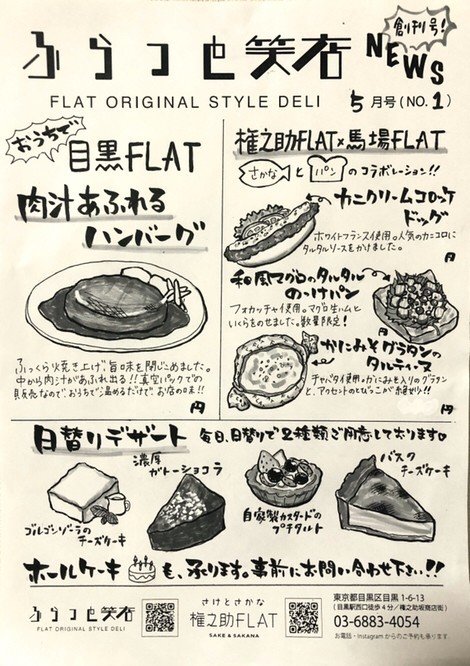 ふらっと笑店
創刊号!
NEWS
FLAT ORIGINAL STYLE DELI
5月号(NO.1)
おうちで
目黒FLAT
肉汁あふれる
ハンバーグ
ふっくら焼き上げ旨味を閉じこめました。
中から肉汁があふれ出る!!真空パックでの
販売なので、おうちで温めるだけで、お店の味!!
円
権之助FLAT×馬場FLAT
さかな と パン のコラボレーション!!
カニクリームコロッケ
ドッグ
ホワイトフランス使用。人気のカニコロに
タルタルソースをかけました。
円
和風マグロのタルタル
のっけパン
フォカッチャ使用。マグロ生ハムと
いくらをのせました。数量限定!
円
かにみそグラタンの
タルティーヌ
チャバタ使用。かにみそ入りのグラタン
と、アクセントのとびっこが絶妙!!
円
日替りデザート 毎日、日替りで2種類ご用意しております。
ゴルゴンゾーラの
チーズケーキ
濃厚
ガトーショコラ
自家製カスタードの
プチタルト
バスク
チーズケーキ
ホールケーキも、承ります。事前にお問い合わせ下さい!!
ふらっと笑店
FLAT ORIGINAL STYLE DELI
さけとさかな
権之助FLAT
SAKE & SAKANA
東京都目黒区目黒1-6-13
(目黒駅西口徒歩4分/権之助坂商店街)
03-6883-4054
お電話・Instagramからのご予約も承ります。